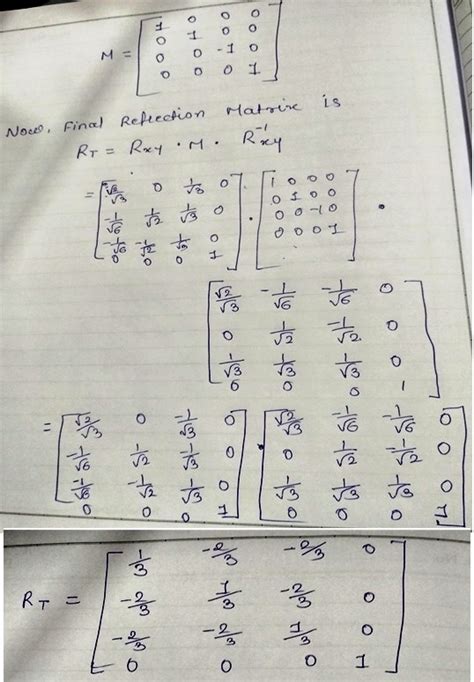 M = [ 1 0 0 0
0 1 0 0
0 0 -1 0
0 0 0 1 ]
Now, Final Reflection Matrix is
R_T = R_xy · M · R^-1_xy
= [ √2/√3 0 1/√3 0
-1/√6 1/√2 1/√3 0
-1/√6 -1/√2 1/√3 0
0 0 0 1 ] · [ 1 0 0 0
0 1 0 0
0 0 -1 0
0 0 0 1 ] ·
[ √2/√3 -1/√6 -1/√6 0
0 1/√2 -1/√2 0
1/√3 1/√3 1/√3 0
0 0 0 1 ]
= [ √2/√3 0 -1/√3 0
-1/√6 1/√2 -1/√3 0
-1/√6 -1/√2 -1/√3 0
0 0 0 1 ] · [ √2/√3 -1/√6 -1/√6 0
0 1/√2 -1/√2 0
1/√3 1/√3 1/√3 0
0 0 0 1 ]
R_T = [ 1/3 -2/3 -2/3 0
-2/3 1/3 -2/3 0
-2/3 -2/3 1/3 0
0 0 0 1 ]